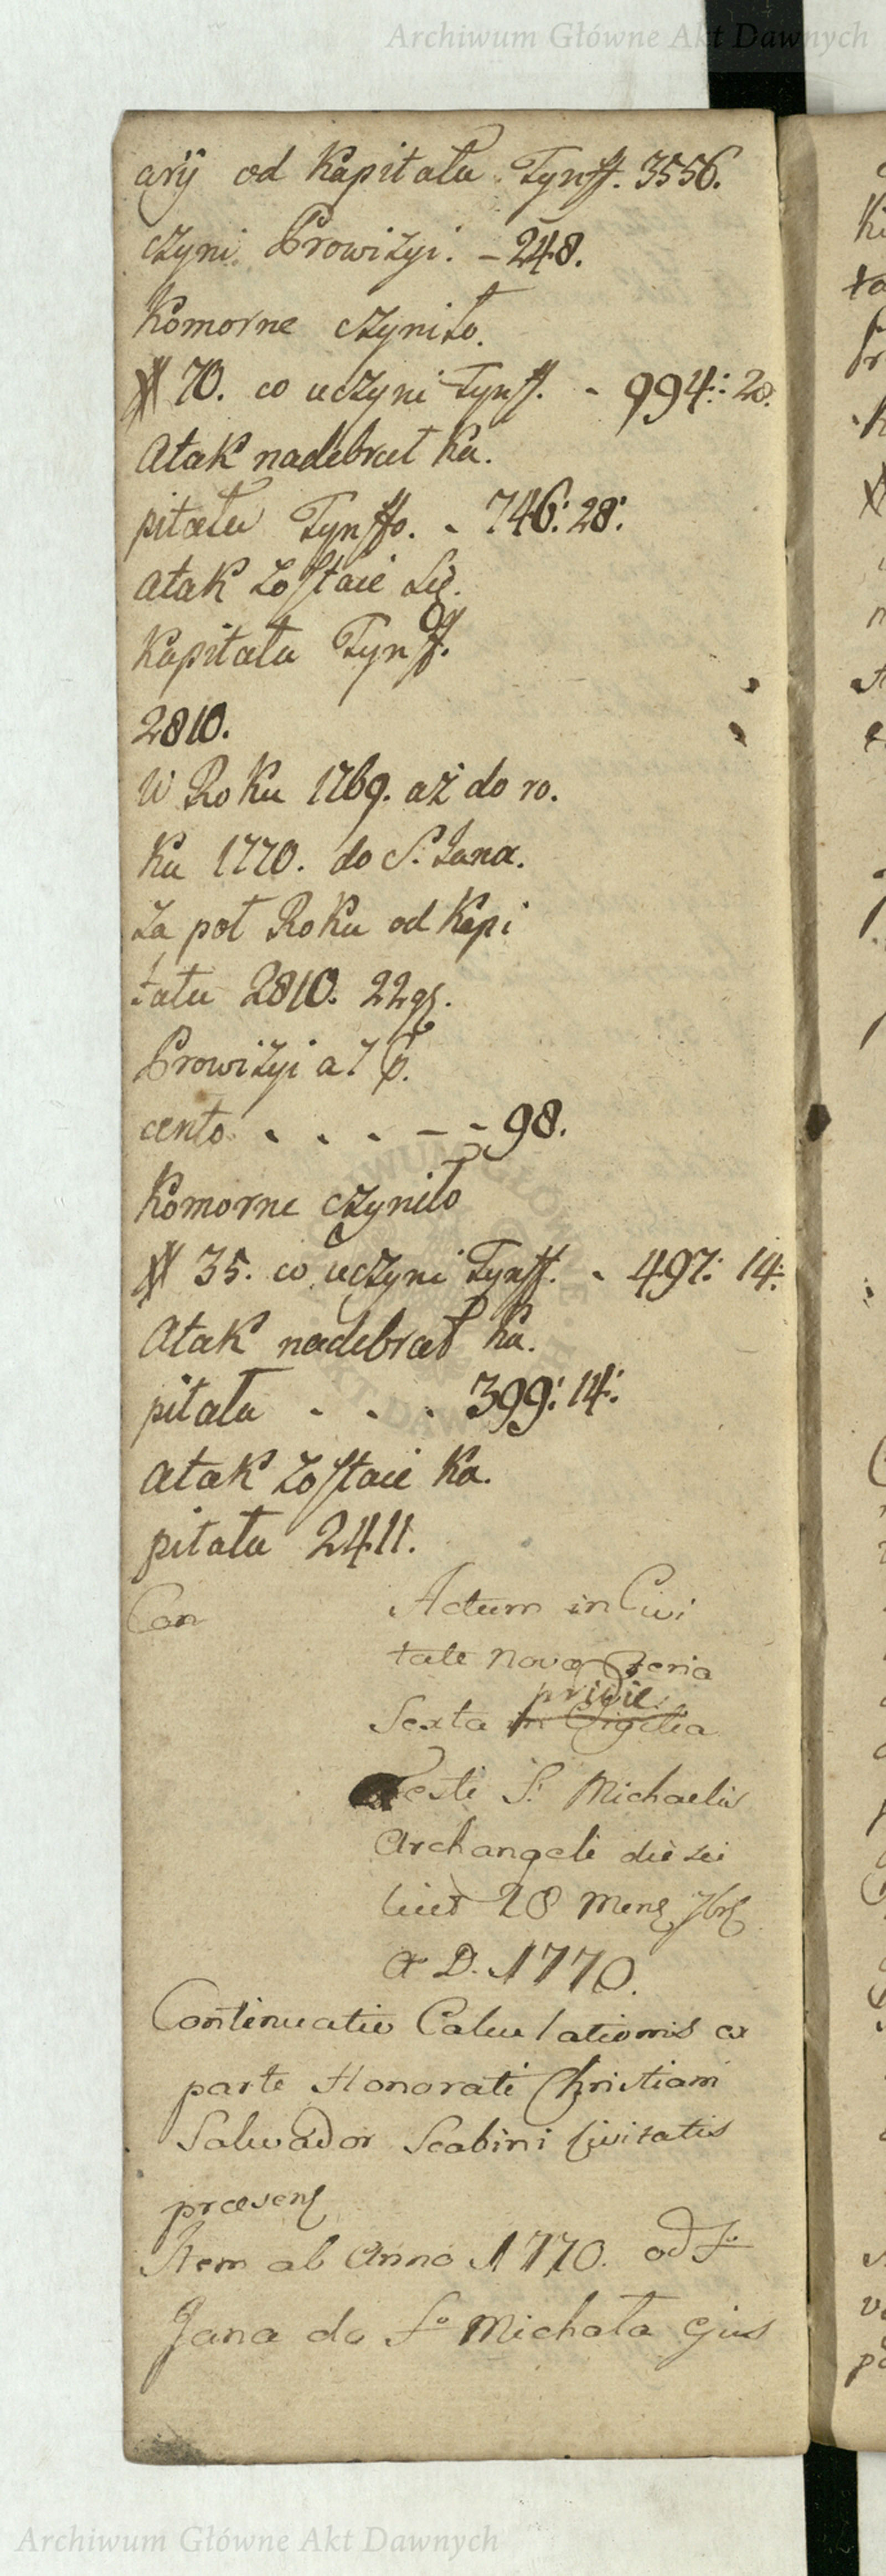 Archiwum Główne Akt Dawnych
aryi od Kapitału Tynff. 3556.
czyni Prowizyi. - 248.
Komorne czyniło.
70. co uczyni Tynff. - 994: 28.
Atak nadebrał Ka.
pitału Tynffo. - 746: 28:
Atak Zostaie Się.
Kapitału Tynff.
2810.
W Roku 1769. aż do ro.
Ku 1770. do S. Jana.
Za poł Roku od Kapi
tału 2810. 22
Prowizyi a 7
cento . . . - - 98.
Komorne czyniło
35. co uczyni Tynff. - 497: 14:
Atak nadebrał Ka.
pitału . . . 399: 14:
Atak Zostaie Ka.
pitału 2411.
Con
Actum in Civi
tate Nova Feria
pridie
Sexta in Vigilia
Festi S. Michaelis
Archangeli die sci
licet 28 Mens 7br
A D. 1770.
Continuatio Calculationis ex
parte Honorati Christiani
Salwador Scabini Civitatis
præsens
Item ab Anno 1770. od So
Jana do So Michała ejus
Archiwum Główne Akt Dawnych